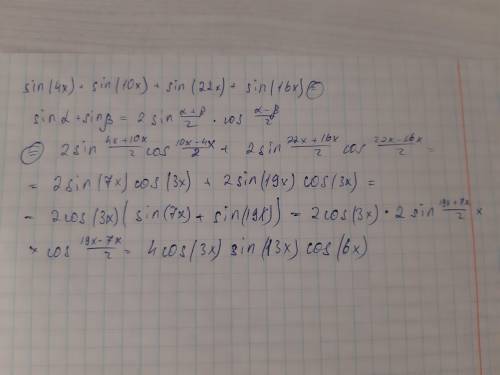 sin(4x) + sin(10x) + sin(22x) + sin(16x) =
sinα + sinβ = 2 sin (α+β)/2 · cos (α-β)/2
= 2sin (4x+10x)/2 cos (10x-4x)/2 + 2sin (22x+16x)/2 cos (22x-16x)/2 =
= 2sin(7x)cos(3x) + 2sin(19x)cos(3x) =
= 2cos(3x)(sin(7x) + sin(19x)) = 2cos(3x) · 2 sin (19x+7x)/2 ×
× cos (19x-7x)/2 = 4cos(3x) sin(13x) cos(6x)